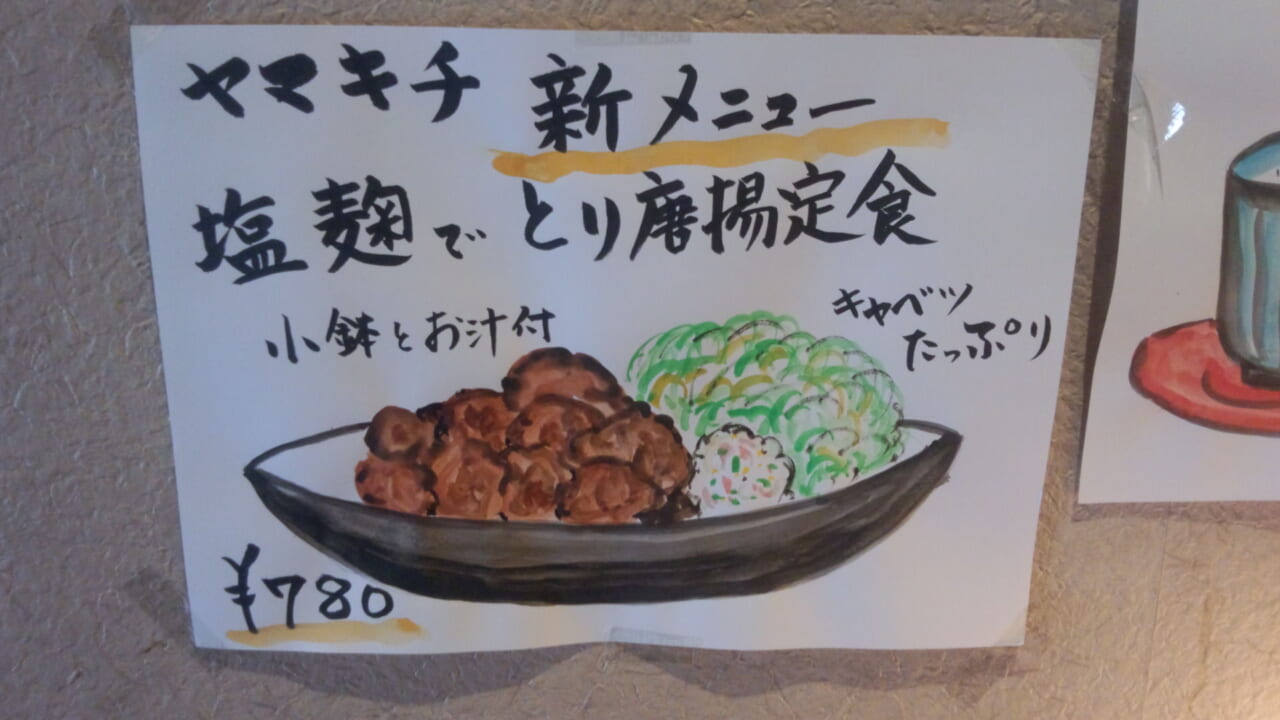 ヤマキチ 新メニュー
塩麹でとり唐揚定食
小鉢とお汁付
キャベツ
たっぷり
¥780